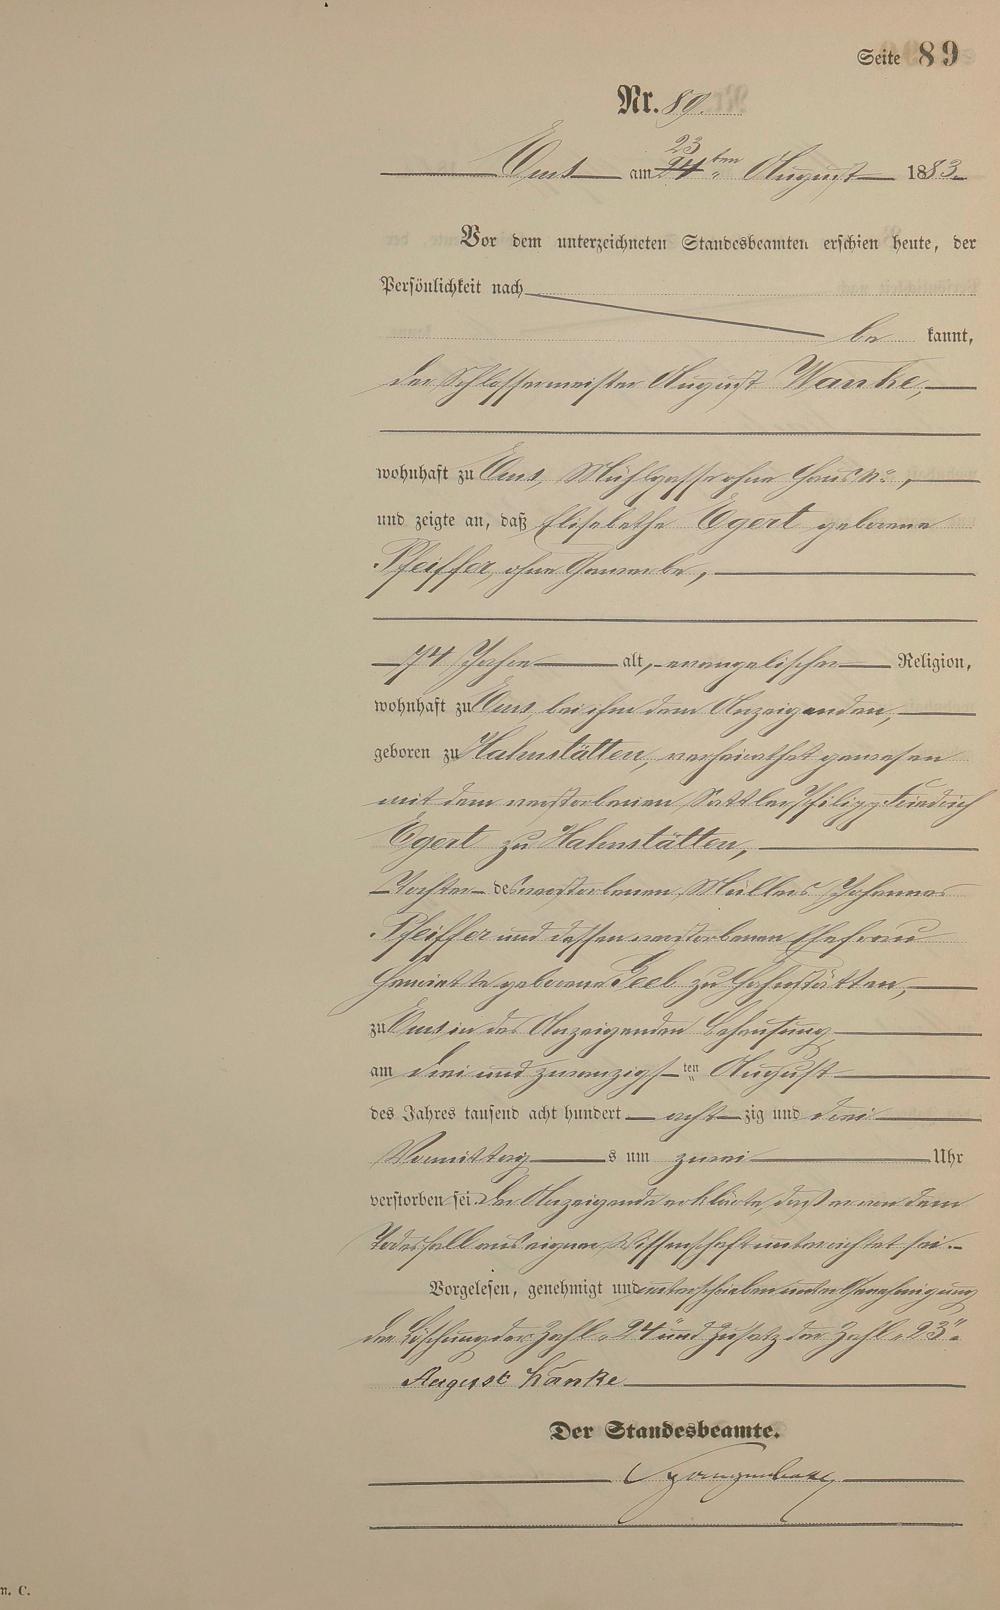 Seite 89
Nr. 89.
Ems am 24ten August 1883.
23
Vor dem unterzeichneten Standesbeamten erschien heute, der
Persönlichkeit nach
be kannt,
der Schlossermeister August Wanke,
wohnhaft zu Ems, Mühlgasse ohne Haus No,
und zeigte an, daß Elisabethe Egert geborene
Pfeiffer, ohne Gewerbe,
74 Jahre alt, evangelischer Religion,
wohnhaft zu Ems, bei ihm dem Anzeigenden,
geboren zu Hahnstätten, verheirathet gewesen
mit dem verstorbenen Sattler Philipp Friedrich
Egert zu Hahnstätten,
Tochter des verstorbenen Müllers Johannes
Pfeiffer und dessen verstorbenen Ehefrau
Henriette geborene Geel zu Hahnstätten,
zu Ems in des Anzeigenden Behausung
am drei und zwanzigsten August
des Jahres tausend acht hundert acht zig und drei
Vormittag s um zwei Uhr
verstorben sei. Der Anzeigende erklärte, daß er von dem
Todesfall aus eigener Wissenschaft unterrichtet sei.
Vorgelesen, genehmigt und unterschrieben unter Genehmigung
der Löschung der Zahl "24" und Zusatz der Zahl "23".
August Wanke
Der Standesbeamte.
n. C.